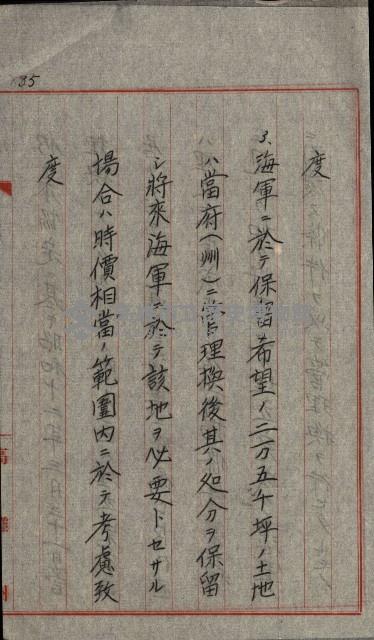 35
度
3、海軍ニ於テ保留希望ノ二万五千坪ノ土地
ハ當府(州)ニ管理換後其ノ処分ヲ保留
シ將來海軍ニ於テ該地ヲ必要トセザル
場合ハ時價相當ノ範圍内ニ於テ考慮致
度
高雄州